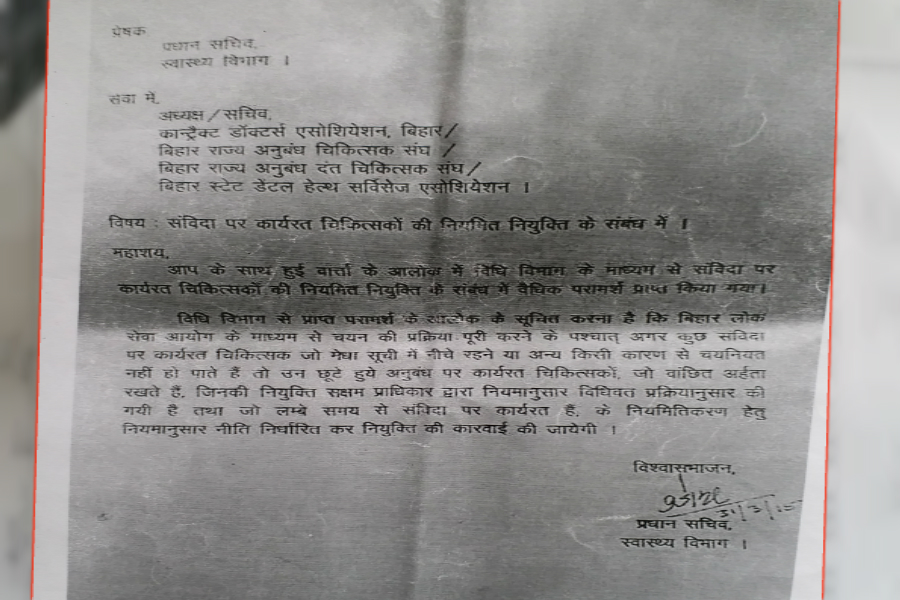 प्रेषक
प्रधान सचिव,
स्वास्थ्य विभाग ।
सेवा में,
अध्यक्ष/सचिव,
कान्ट्रैक्ट डॉक्टर्स एसोशियेशन, बिहार/
बिहार राज्य अनुबंध चिकित्सक संघ /
बिहार राज्य अनुबंध दंत चिकित्सक संघ/
बिहार स्टेट डेंटल हेल्थ सर्विसेज एसोशियेशन ।
विषय : संविदा पर कार्यरत चिकित्सकों की नियमित नियुक्ति के संबंध में ।
महाशय,
आप के साथ हुई वार्ता के आलोक में विधि विभाग के माध्यम से संविदा पर
कार्यरत चिकित्सकों की नियमित नियुक्ति के संबंध में वैधिक परामर्श प्राप्त किया गया।
विधि विभाग से प्राप्त परामर्श के आलोक के सूचित करना है कि बिहार लोक
सेवा आयोग के माध्यम से चयन की प्रक्रिया पूरी करने के पश्चात् अगर कुछ संविदा
पर कार्यरत चिकित्सक जो मेधा सूची में नीचे रहने या अन्य किसी कारण से चयनियत
नहीं हो पाते हैं तो उन छूटे हुये अनुबंध पर कार्यरत चिकित्सकों, जो वांछित अर्हता
रखते हैं, जिनकी नियुक्ति सक्षम प्राधिकार द्वारा नियमानुसार विधिवत प्रक्रियानुसार की
गयी है तथा जो लम्बे समय से संविदा पर कार्यरत हैं, के नियमितिकरण हेतु
नियमानुसार नीति निर्धारित कर नियुक्ति की कारवाई की जायेगी ।
विश्वासभाजन,
31/3/15
प्रधान सचिव,
स्वास्थ्य विभाग ।